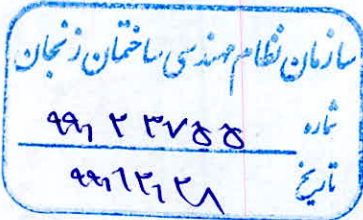 سازمان نظام مهندسی ساختمان زنجان
شماره ۹۹٫۲۳۷۵۵
تاریخ ۹۹٫۱۲٫۲۸